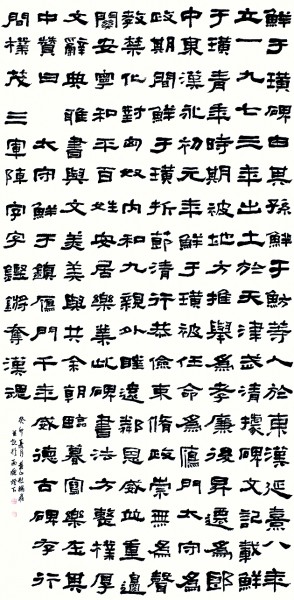 鮮于璜碑由其孫鮮于魴等人於東漢延熹八年
立一九七三年出土於天津武清據碑文載鮮
于璜青年時期被地方推舉爲孝廉後昇遷爲郎
中東漢永初元年鮮于璜被任命爲鴈門太守
政期間鮮于璜折節清行恭儉束脩政崇無爲聲
教禁化對匈奴內和九親外睦遠鄰恩威並重邊
關安寧和平百姓安居樂業此碑書法方整樸厚
文辭典雅書與文美與美共余朝臨暮寫樂在其
中贊曰 太守鮮于鎮鴈門千年威德古碑存行
間樸茂三軍陣字字鏗鏘奪漢魂
癸卯夏月